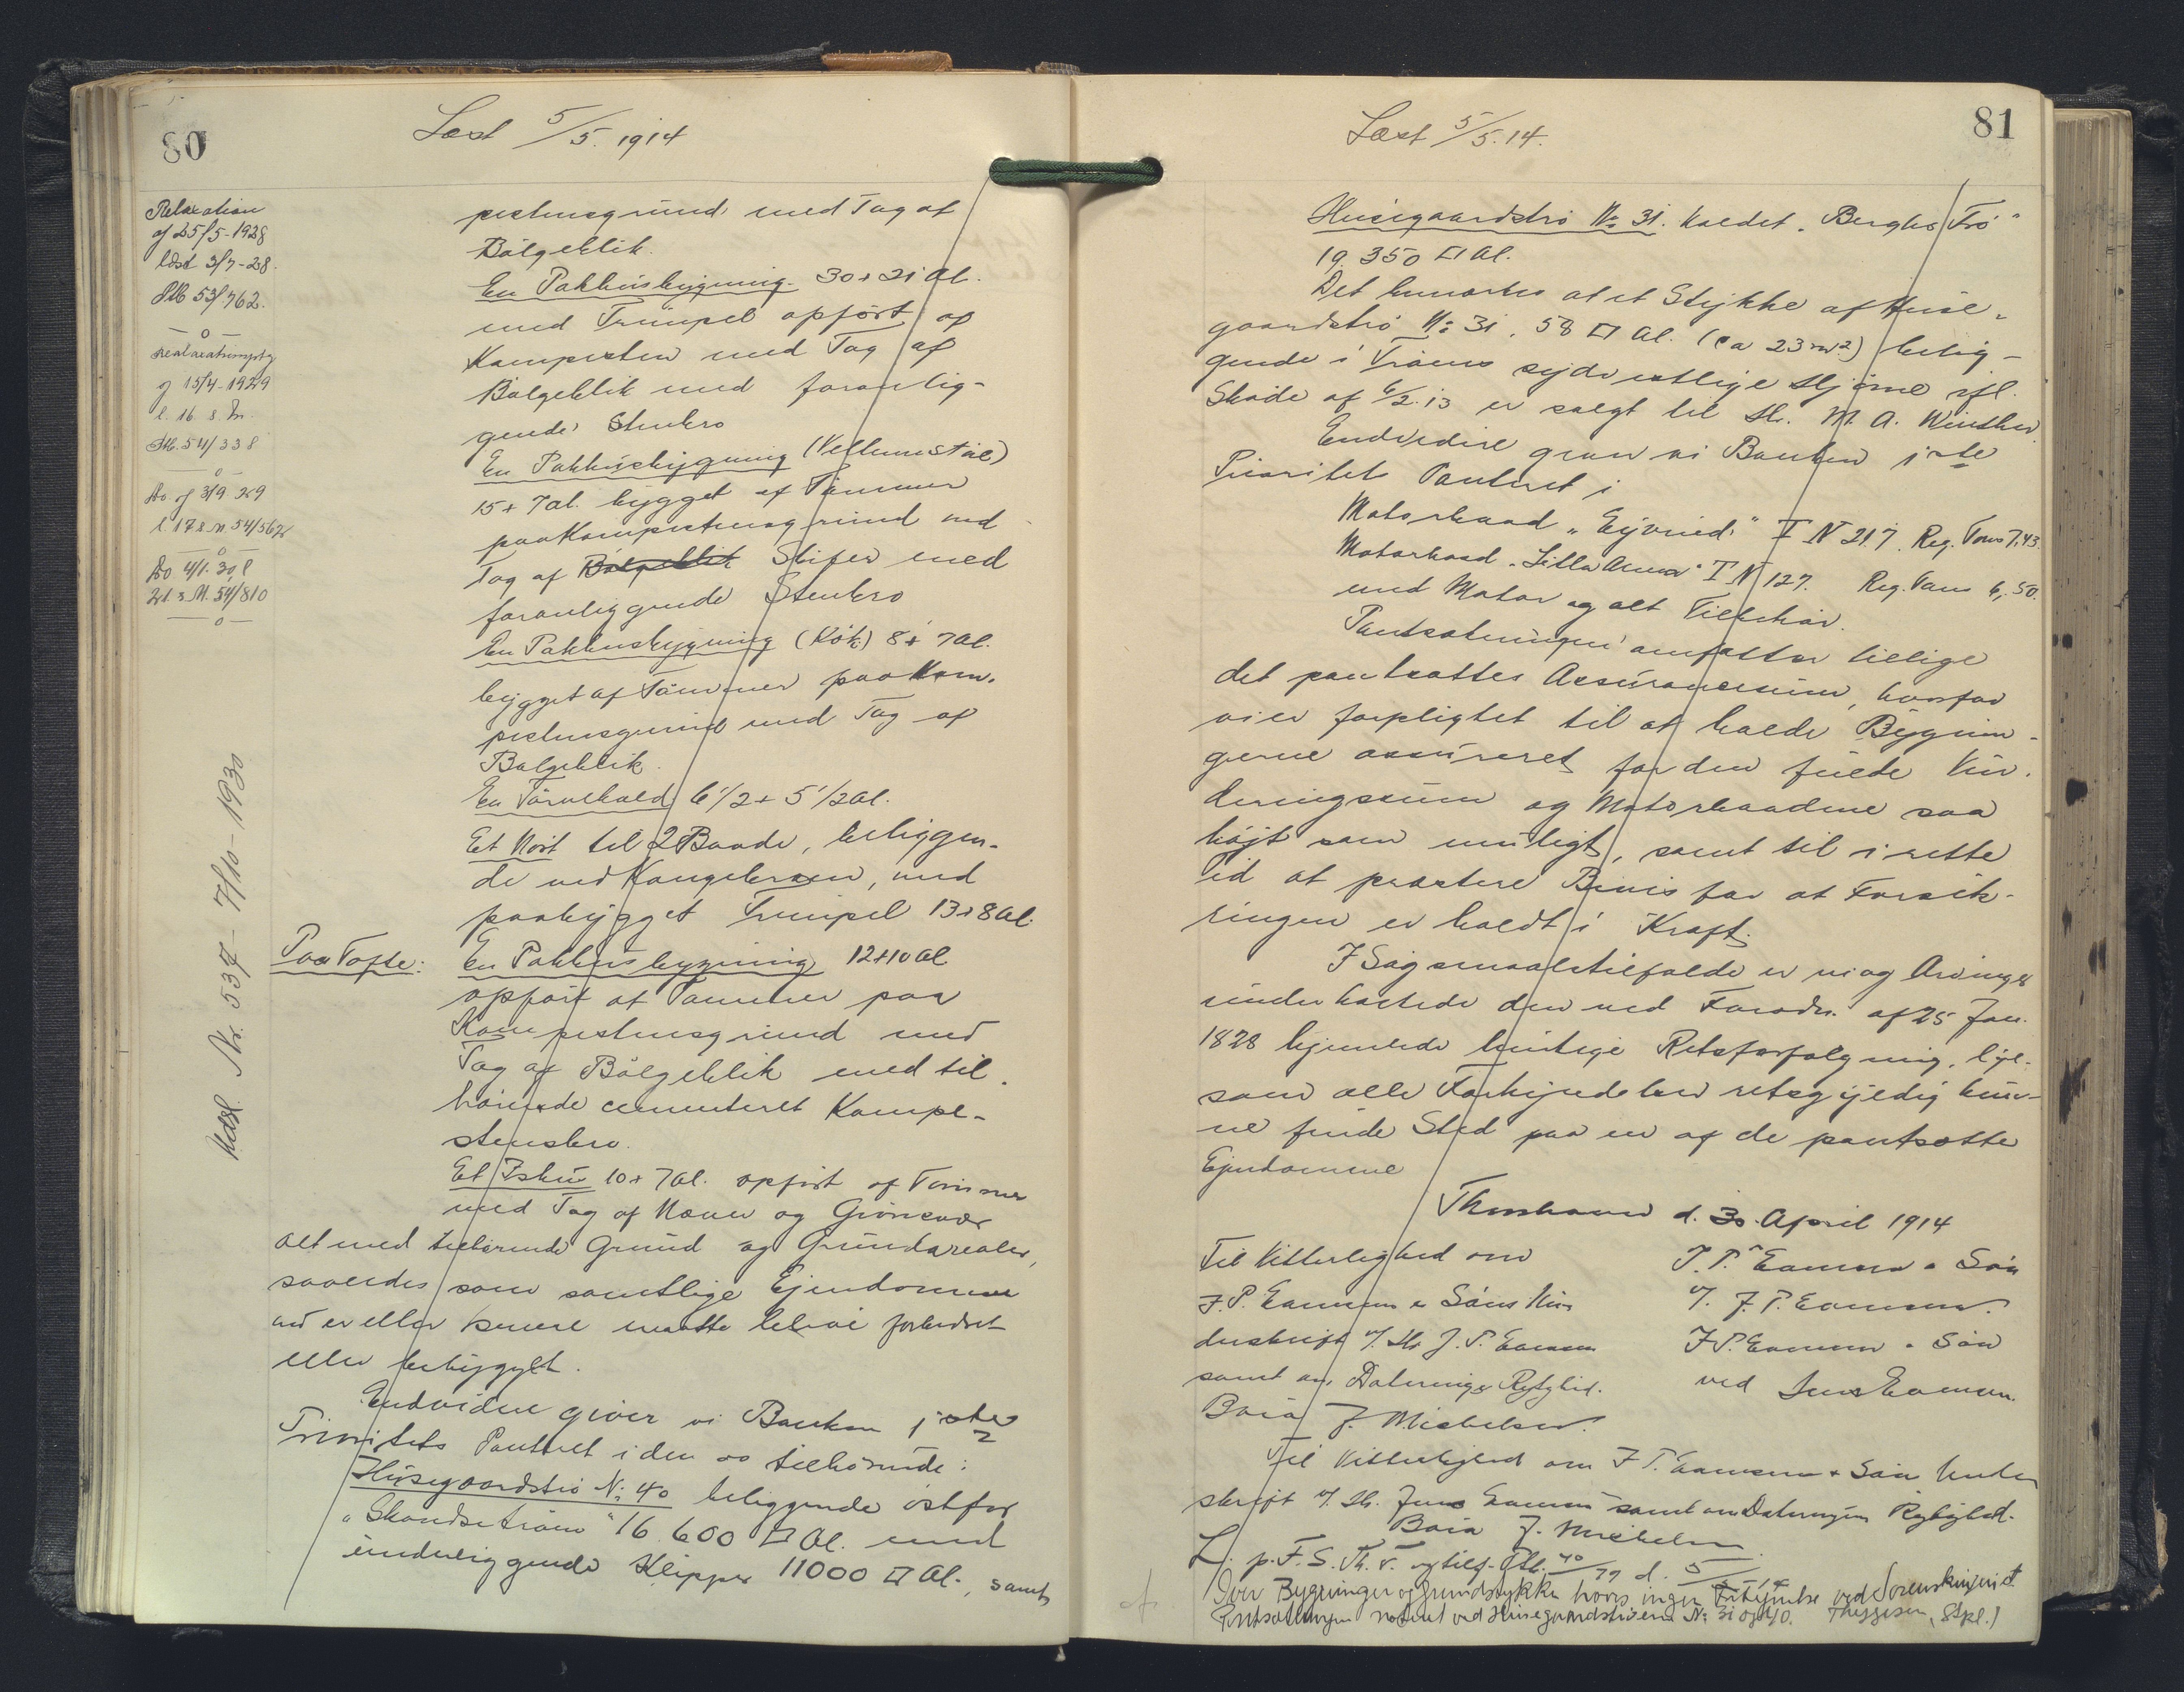 80
Læst 5/5. 1914
Relaxation
af 25/5-1928
læst 3/7-28.
Pb 53/762.
af 15/4-1929
l. 16 s. M.
Pb. 54/338
Do. af 3/9 29
l 17 s. M 54/562
Do 4/1. 30, l
21. s. M. 54/810
Udsl. Nr. 537 - 7/10-1930
pestensgrund med Tag af
Bølgeblik.
En Pakhusbygning. 30 + 21 Al.
med Trumpel opført af
Kampesten med Tag af
Bølgeblik med foranlig-
gende Stenbro
En Pakhusbygning
15 + 7 Al. bygget af Tømmer
paa Kampestensgrund med
Tag af Bølgeblik Skifer med
foranliggende Stenbro
En Pakhusbygning (Kök) 8 + 7 Al.
bygget af Tømmer paa Kam-
pestensgrund med Tag af
Bølgeblik.
En Tørvehold 6 1/2 + 5 1/2 Al.
Et Nöst til 2 Baade, beliggen-
de ved Kongebroen, med
paabygget Trumpel 13 + 8 Al.
Paa Tofte: En Pakhusbygning 12 + 10 Al
opført af Tømmer paa
Kampestensgrund med
Tag af Bølgeblik med til-
hørende cementeret Kampe-
stensbro.
Et Ishus 10 + 7 Al. opført af Tømmer
med Tag af Næver og Grönsvær
alt med tilhørende Grund og Grundarealer,
saaledes som samtlige Ejendomme
nu er eller senere maatte blive forbedret
eller bebygget.
Endvidere giver vi Banken 1ste
Prioritets Panteret i den os tilhørende:
Husegaardstrø No 40 beliggende østfor
"Skandsetrøen" 16.600 □ Al. med
underliggende Klipper 11000 □ Al., samt
81
Læst 5/5. 14.
Husegaardstrø No 31. kaldet "Berghs Trø"
19.350 □ Al.
Det bemærkes at et Stykke af Huse-
gaardstrø No 31, 58 □ Al. (ca 23 m2) belig-
gende i Trøens sydvestlige Hjørne ifl.
Skøde af 6/2. 13 er solgt til Hr. M. A. Winther.
Endvidere giver vi Banken 1ste
Prioritets Panteret i
Motorbaad "Eyvind" T N 217. Reg. Tons 7,43
Motorbaad "Lilla Anna" T N 127. Reg. Tons 6,50.
med Motor og alt Tilbehør.
Pantsætningen omfatter tillige
det pantsattes Assurancesum, hvorfor
vi er forpligtet til at holde Bygnin-
gerne assureret for den fulde Vur-
deringssum og Motorbaadene saa
højt som muligt, samt til i rette
Tid at præstere Bevis for at Forsik-
ringen er holdt i Kraft.
I Søgsmaalstilfælde er vi og Arvinger
underkastede den ved Forordn. af 25 Jan.
1828 hjemlede hurtige Retsforfølgning, lige-
som alle Forkyndelser retsgyldig kun-
ne finde Sted paa en af de pantsatte
Ejendomme
Thorshavn d. 30. April 1914
Til Vitterlighed om
J. P. & Søns Un-
derskrift v/ Hr J. P.
samt om Datering & Rigtighed.
J. Michelsen.
J. P. & Søn
v/ J. P.
J. P. & Søn
ved Jens
Til Vitterlighed om J P. & Søn Under
skrift v/ Hr. Jens samt om Dateringens Rigtighed.
J. Michelsen.
Over Bygninger og Grundstykke haves ingen ved Sorenskriveriet
Pantsætningen noteret ved Husegaardstrøerne No 31 og 40. (Stpl.)